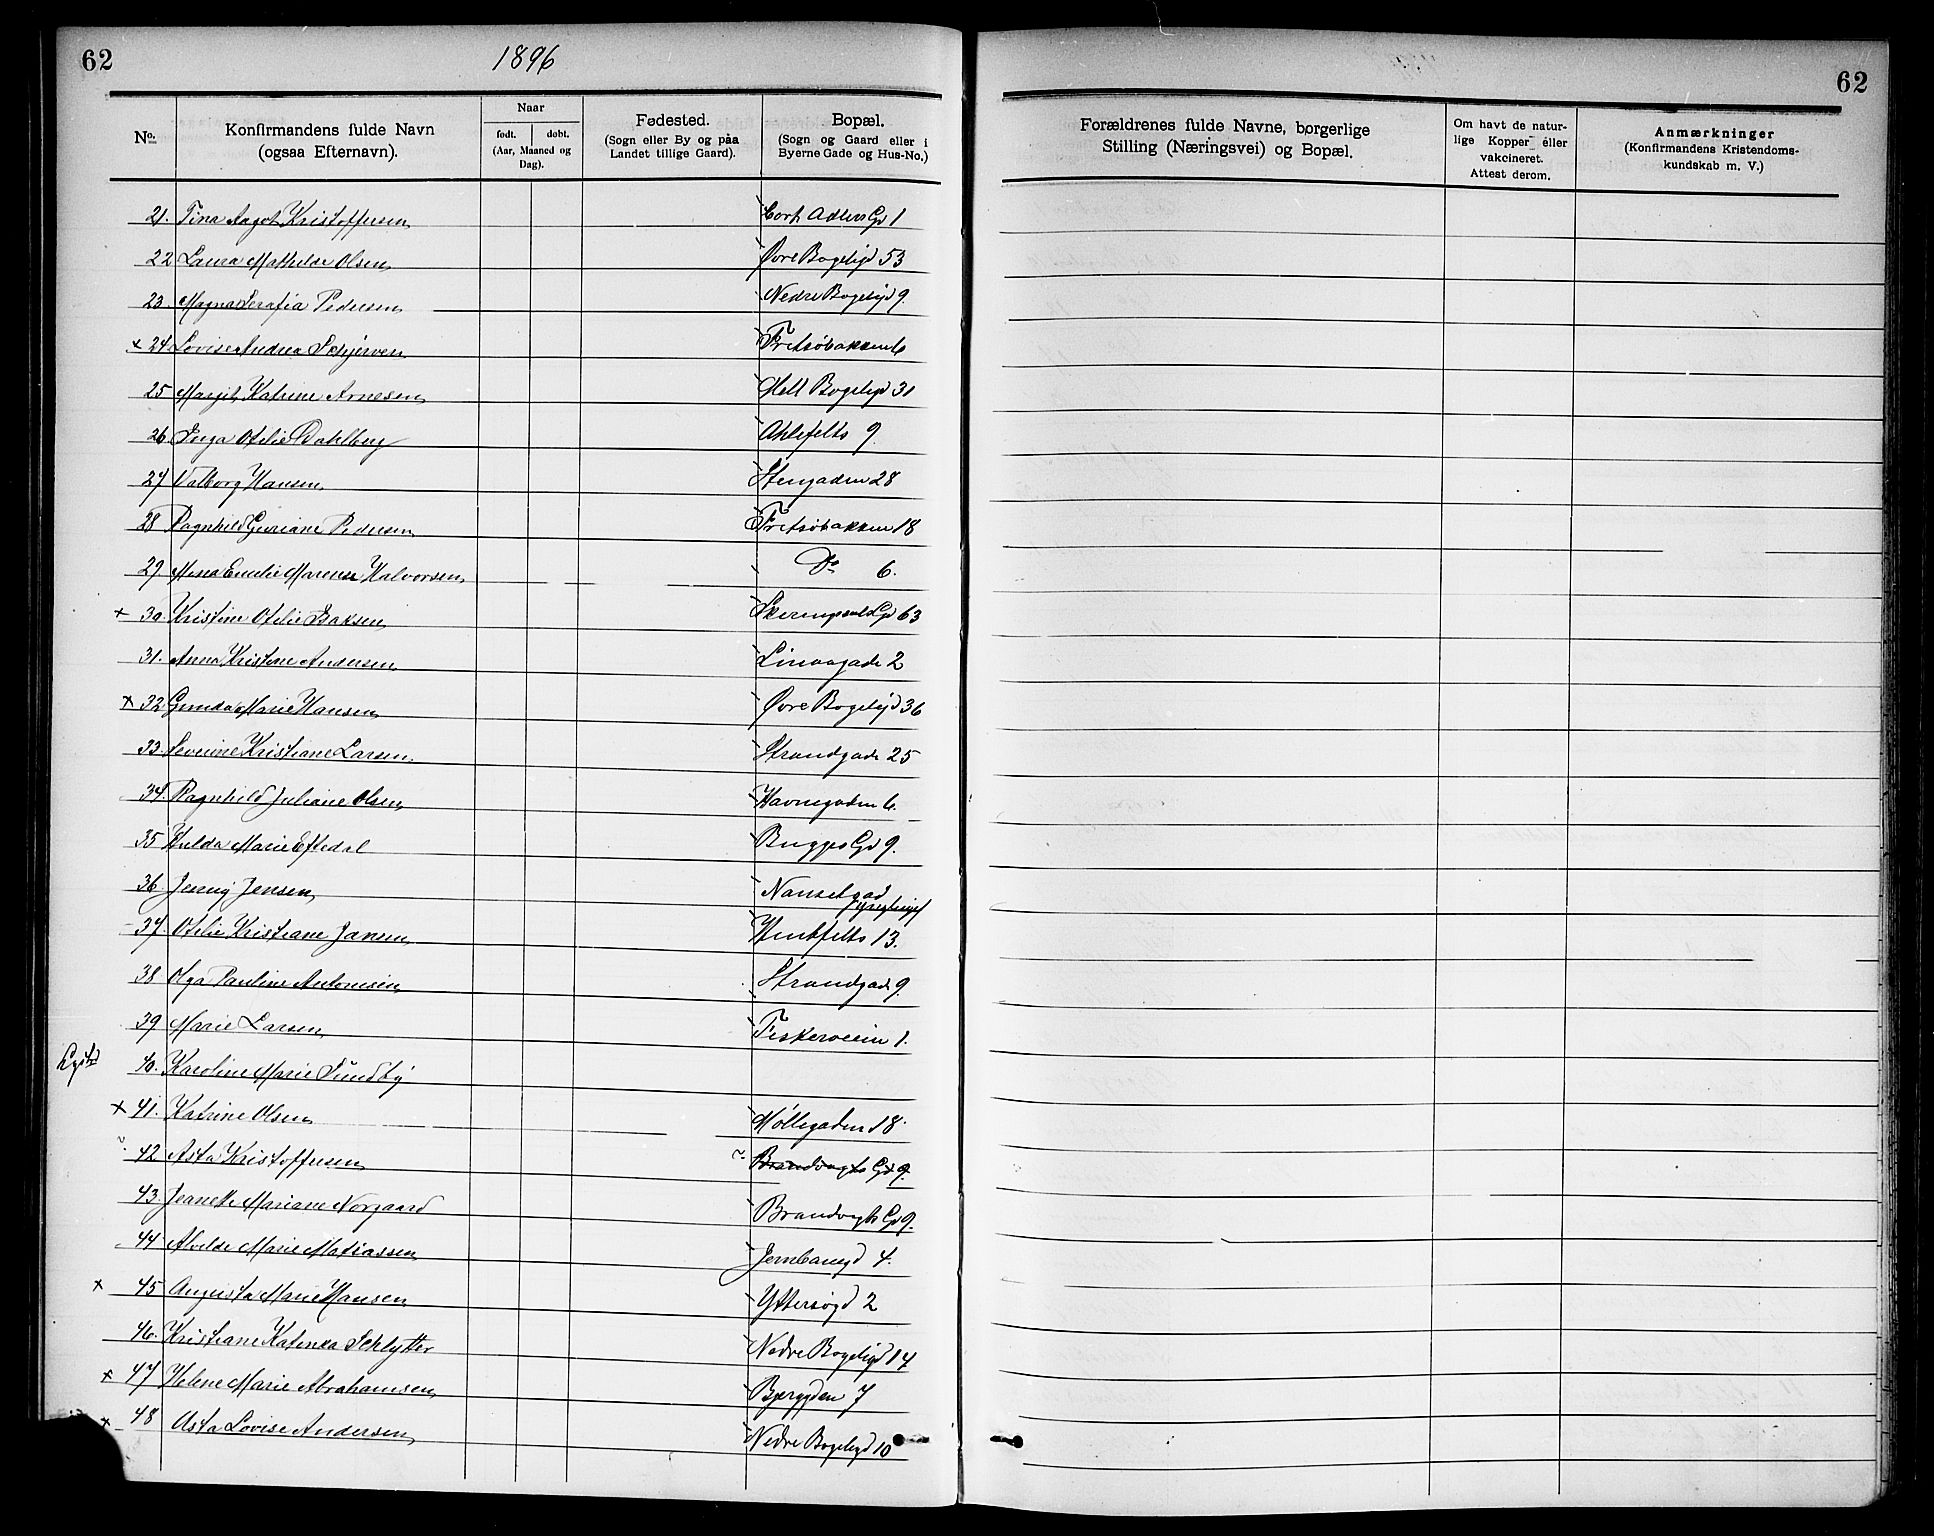 62
1896
No.
Konfirmandens fulde Navn
(ogsaa Efternavn).
Naar
født. døbt.
(Aar, Maaned og
Dag).
Fødested.
(Sogn eller By og paa
Landet tillige Gaard).
Bopæl.
(Sogn og Gaard eller i
Byerne Gade og Hus-No.)
21. Tina Aagot Kristoffersen Cort Adlers Gd 1
22 Laura Mathilde Olsen Øvre Bogeligd 53
23. Magna Serafia Pedersen Nedre Bogeligd 9.
x 24. Lovise Andrea Schjerven Fritsøbakken 6
25 Margit Katrine Arnesen Mell Bogeligd 31
26 Inga Otelie Dahlberg Ahlefelts 9.
27 Valborg Hansen Stengaden 28
28 Ragnhild Guriane Pedersen Fritsøbakken 18
29 Emelie Halvorsen Do 6.
x 30. Kristine Otelie Isaksen 63
31. Anna Kristine Andersen Linaagade 2
x 32 Gunda Marie Hansen Øvre Bogeligd 36
33. Severine Kristiane Larsen Strandgade 25
34. Ragnhild Juliane Olsen Havnegaden 6.
35 Hulda Marie Eftedal Bugges Gd 9.
36 Jenny Jensen Nansetgad
37. Otelie Kristiane Jansen 13.
38 Olga Pauline Antonisen Strandgade 9.
39 Marie Larsen Fiskerveien 1.
40. Karoline Marie Sundby
x 41. Katrine Olsen Møllegaden 18.
42 Asta Kristoffersen Brandvagts Gd 9.
43. Jeanette Mariane Norgaard Brandvagts Gd 9.
44 Alvilde Marie Matiassen Jernbanegd 4.
x 45 Augusta Marie Hansen Yttersøgd 2
46. Kristiane Katinka Schlytter Nedre Bogeligd 14
x 47 Helene Marie Abrahamsen Bjerggden 7
x 48 Asta Lovise Andersen Nedre Bogeligd 10
62
Forældrenes fulde Navne, borgerlige
Stilling (Næringsvei) og Bopæl.
Om havt de natur-
lige Kopper eller
vakcineret.
Attest derom.
Anmærkninger
(Konfirmandens Kristendoms-
kundskab m. V.)